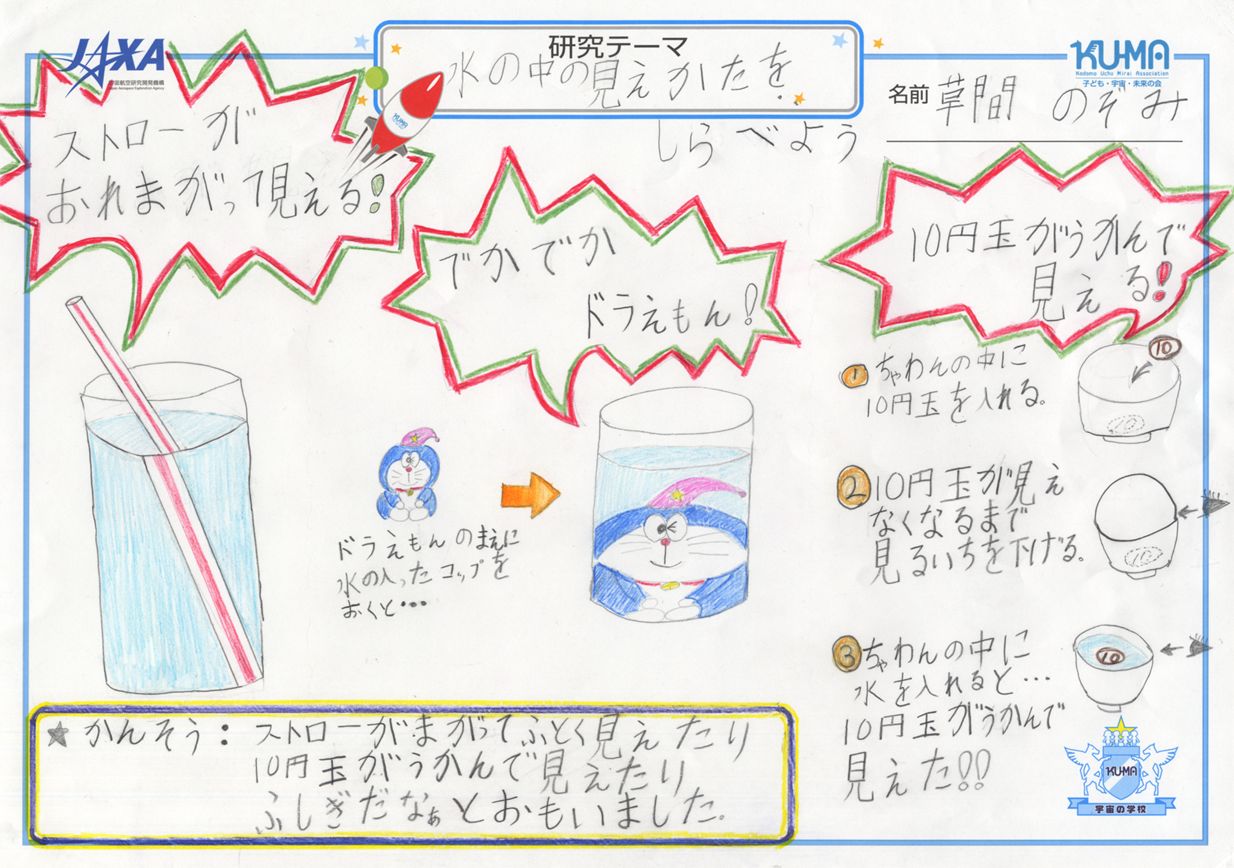 JAXA
宇宙航空研究開発機構
Japan Aerospace Exploration Agency
研究テーマ
水の中の見えかたを
しらべよう
KUMA
Kodomo Uchu Mirai Association
子ども・宇宙・未来の会
名前 草間 のぞみ
KUMA
ストローが
おれまがって見える!
でかでか
ドラえもん!
10円玉がうかんで
見える!
ドラえもんのまえに
水の入ったコップを
おくと・・・
① ちゃわんの中に
10円玉を入れる。
10
10
② 10円玉が見え
なくなるまで
見るいちを下げる。
10
③ ちゃわんの中に
水を入れると・・・
10円玉がうかんで
見えた!!
10
★ かんそう: ストローがまがってふとく見えたり
10円玉がうかんで見えたり
ふしぎだなぁとおもいました。
KUMA
宇宙の学校